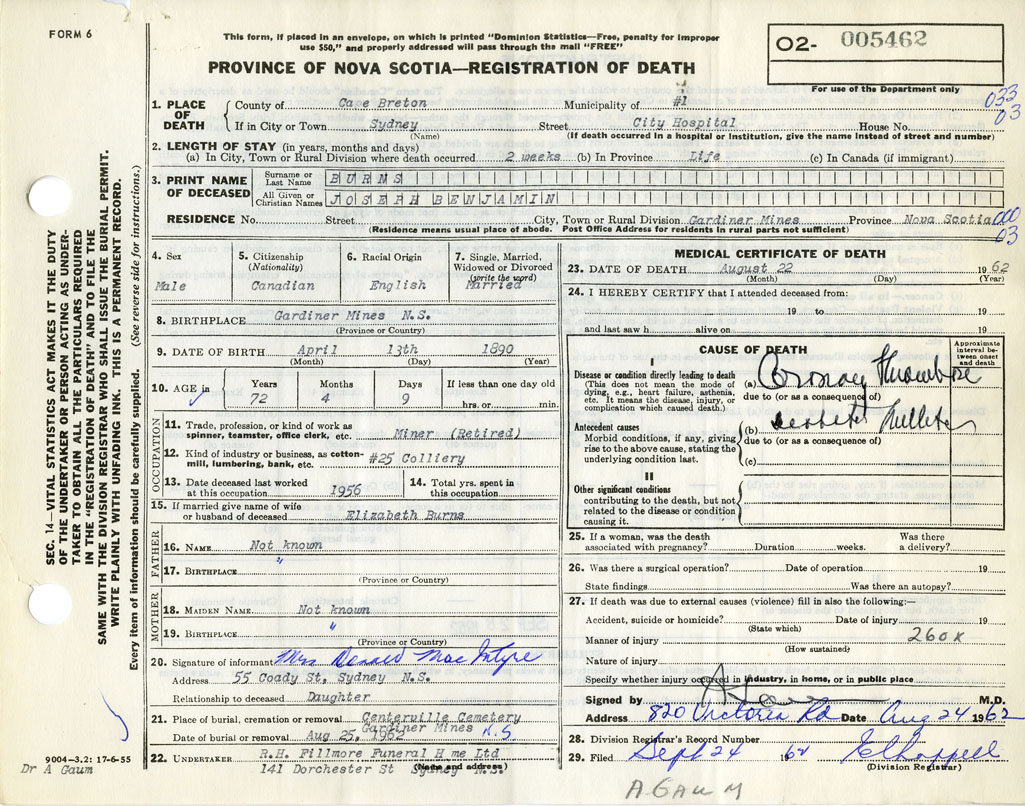 FORM 6
This form, if placed in an envelope, on which is printed "Dominion Statistics—Free, penalty for improper
use $50," and properly addressed will pass through the mail "FREE"
02- 005462
PROVINCE OF NOVA SCOTIA—REGISTRATION OF DEATH
For use of the Department only
1. PLACE OF DEATH County of Ca e Breton Municipality of #1 033
03
If in City or Town Sydney Street City Hospital House No.
(Name) (If death occurred in a hospital or Institution, give the name instead of street and number)
2. LENGTH OF STAY (in years, months and days)
(a) In City, Town or Rural Division where death occurred 2 weeks (b) In Province Life (c) In Canada (if immigrant)
3. PRINT NAME OF DECEASED Surname or Last Name BURNS
All Given or Christian Names JOSEPH BENJAMIN
RESIDENCE No. Street City, Town or Rural Division Gardiner Mines Province Nova Scotia 000
03
(Residence means usual place of abode. Post Office Address for residents in rural parts not sufficient)
4. Sex 5. Citizenship 6. Racial Origin 7. Single, Married,
(Nationality) Widowed or Divorced
(write the word)
Male Canadian English Married
8. BIRTHPLACE Gardiner Mines N.S.
(Province or Country)
9. DATE OF BIRTH April 13th 1890
(Month) (Day) (Year)
10. AGE in Years Months Days If less than one day old
72 4 9 hrs. or min.
OCCUPATION
11. Trade, profession, or kind of work as
spinner, teamster, office clerk, etc. Miner (Retired)
12. Kind of industry or business, as cotton-
mill, lumbering, bank, etc. #25 Colliery
13. Date deceased last worked 14. Total yrs. spent in
at this occupation 1956 this occupation
15. If married give name of wife
or husband of deceased Elizabeth Burns
FATHER
16. NAME Not known
17. BIRTHPLACE "
(Province or Country)
MOTHER
18. MAIDEN NAME Not known
19. BIRTHPLACE "
(Province or Country)
20. Signature of informant Mrs Donald MacIntyre
Address 55 Coady St, Sydney N.S.
Relationship to deceased Daughter
21. Place of burial, cremation or removal Centerville Cemetery
Gardiner Mines N.S.
Date of burial or removal Aug 25, 1962
22. UNDERTAKER R.H. Fillmore Funeral H me Ltd
141 Dorchester St Sydney N.S.
(Name and address)
MEDICAL CERTIFICATE OF DEATH
23. DATE OF DEATH August 22 1962
(Month) (Day) (Year)
24. I HEREBY CERTIFY that I attended deceased from:
19 to 19
and last saw h alive on 19
CAUSE OF DEATH
Approximate
interval be-
tween onset
and death
I
Disease or condition directly leading to death
(This does not mean the mode of
dying, e.g., heart failure, asthenia,
etc. It means the disease, injury, or
complication which caused death.)
(a) Coronary Thrombose
due to (or as a consequence of)
Antecedent causes
Morbid conditions, if any, giving
rise to the above cause, stating the
underlying condition last.
(b) Diabetes Mellitus
due to (or as a consequence of)
(c)
II
Other significant conditions
contributing to the death, but not
related to the disease or condition
causing it.
25. If a woman, was the death Was there
associated with pregnancy? Duration weeks. a delivery?
26. Was there a surgical operation? Date of operation 19
State findings Was there an autopsy?
27. If death was due to external causes (violence) fill in also the following:—
Accident, suicide or homicide? Date of injury 19
(State which)
Manner of injury 260x
(How sustained)
Nature of injury
Specify whether injury occurred in industry, in home, or in public place
Signed by M.D.
Address 820 Victoria Rd Date Aug 24 1962
28. Division Registrar's Record Number
29. Filed Sept 24 1962
(Division Registrar)
A. GAUM
SEC. 14—VITAL STATISTICS ACT MAKES IT THE DUTY
OF THE UNDERTAKER OR PERSON ACTING AS UNDER-
TAKER TO OBTAIN ALL THE PARTICULARS REQUIRED
IN THE "REGISTRATION OF DEATH" AND TO FILE THE
SAME WITH THE DIVISION REGISTRAR WHO SHALL ISSUE THE BURIAL PERMIT.
WRITE PLAINLY WITH UNFADING INK. THIS IS A PERMANENT RECORD.
Every item of information should be carefully supplied. (See reverse side for instructions.)
9004—3.2: 17-6-55
Dr A Gaum